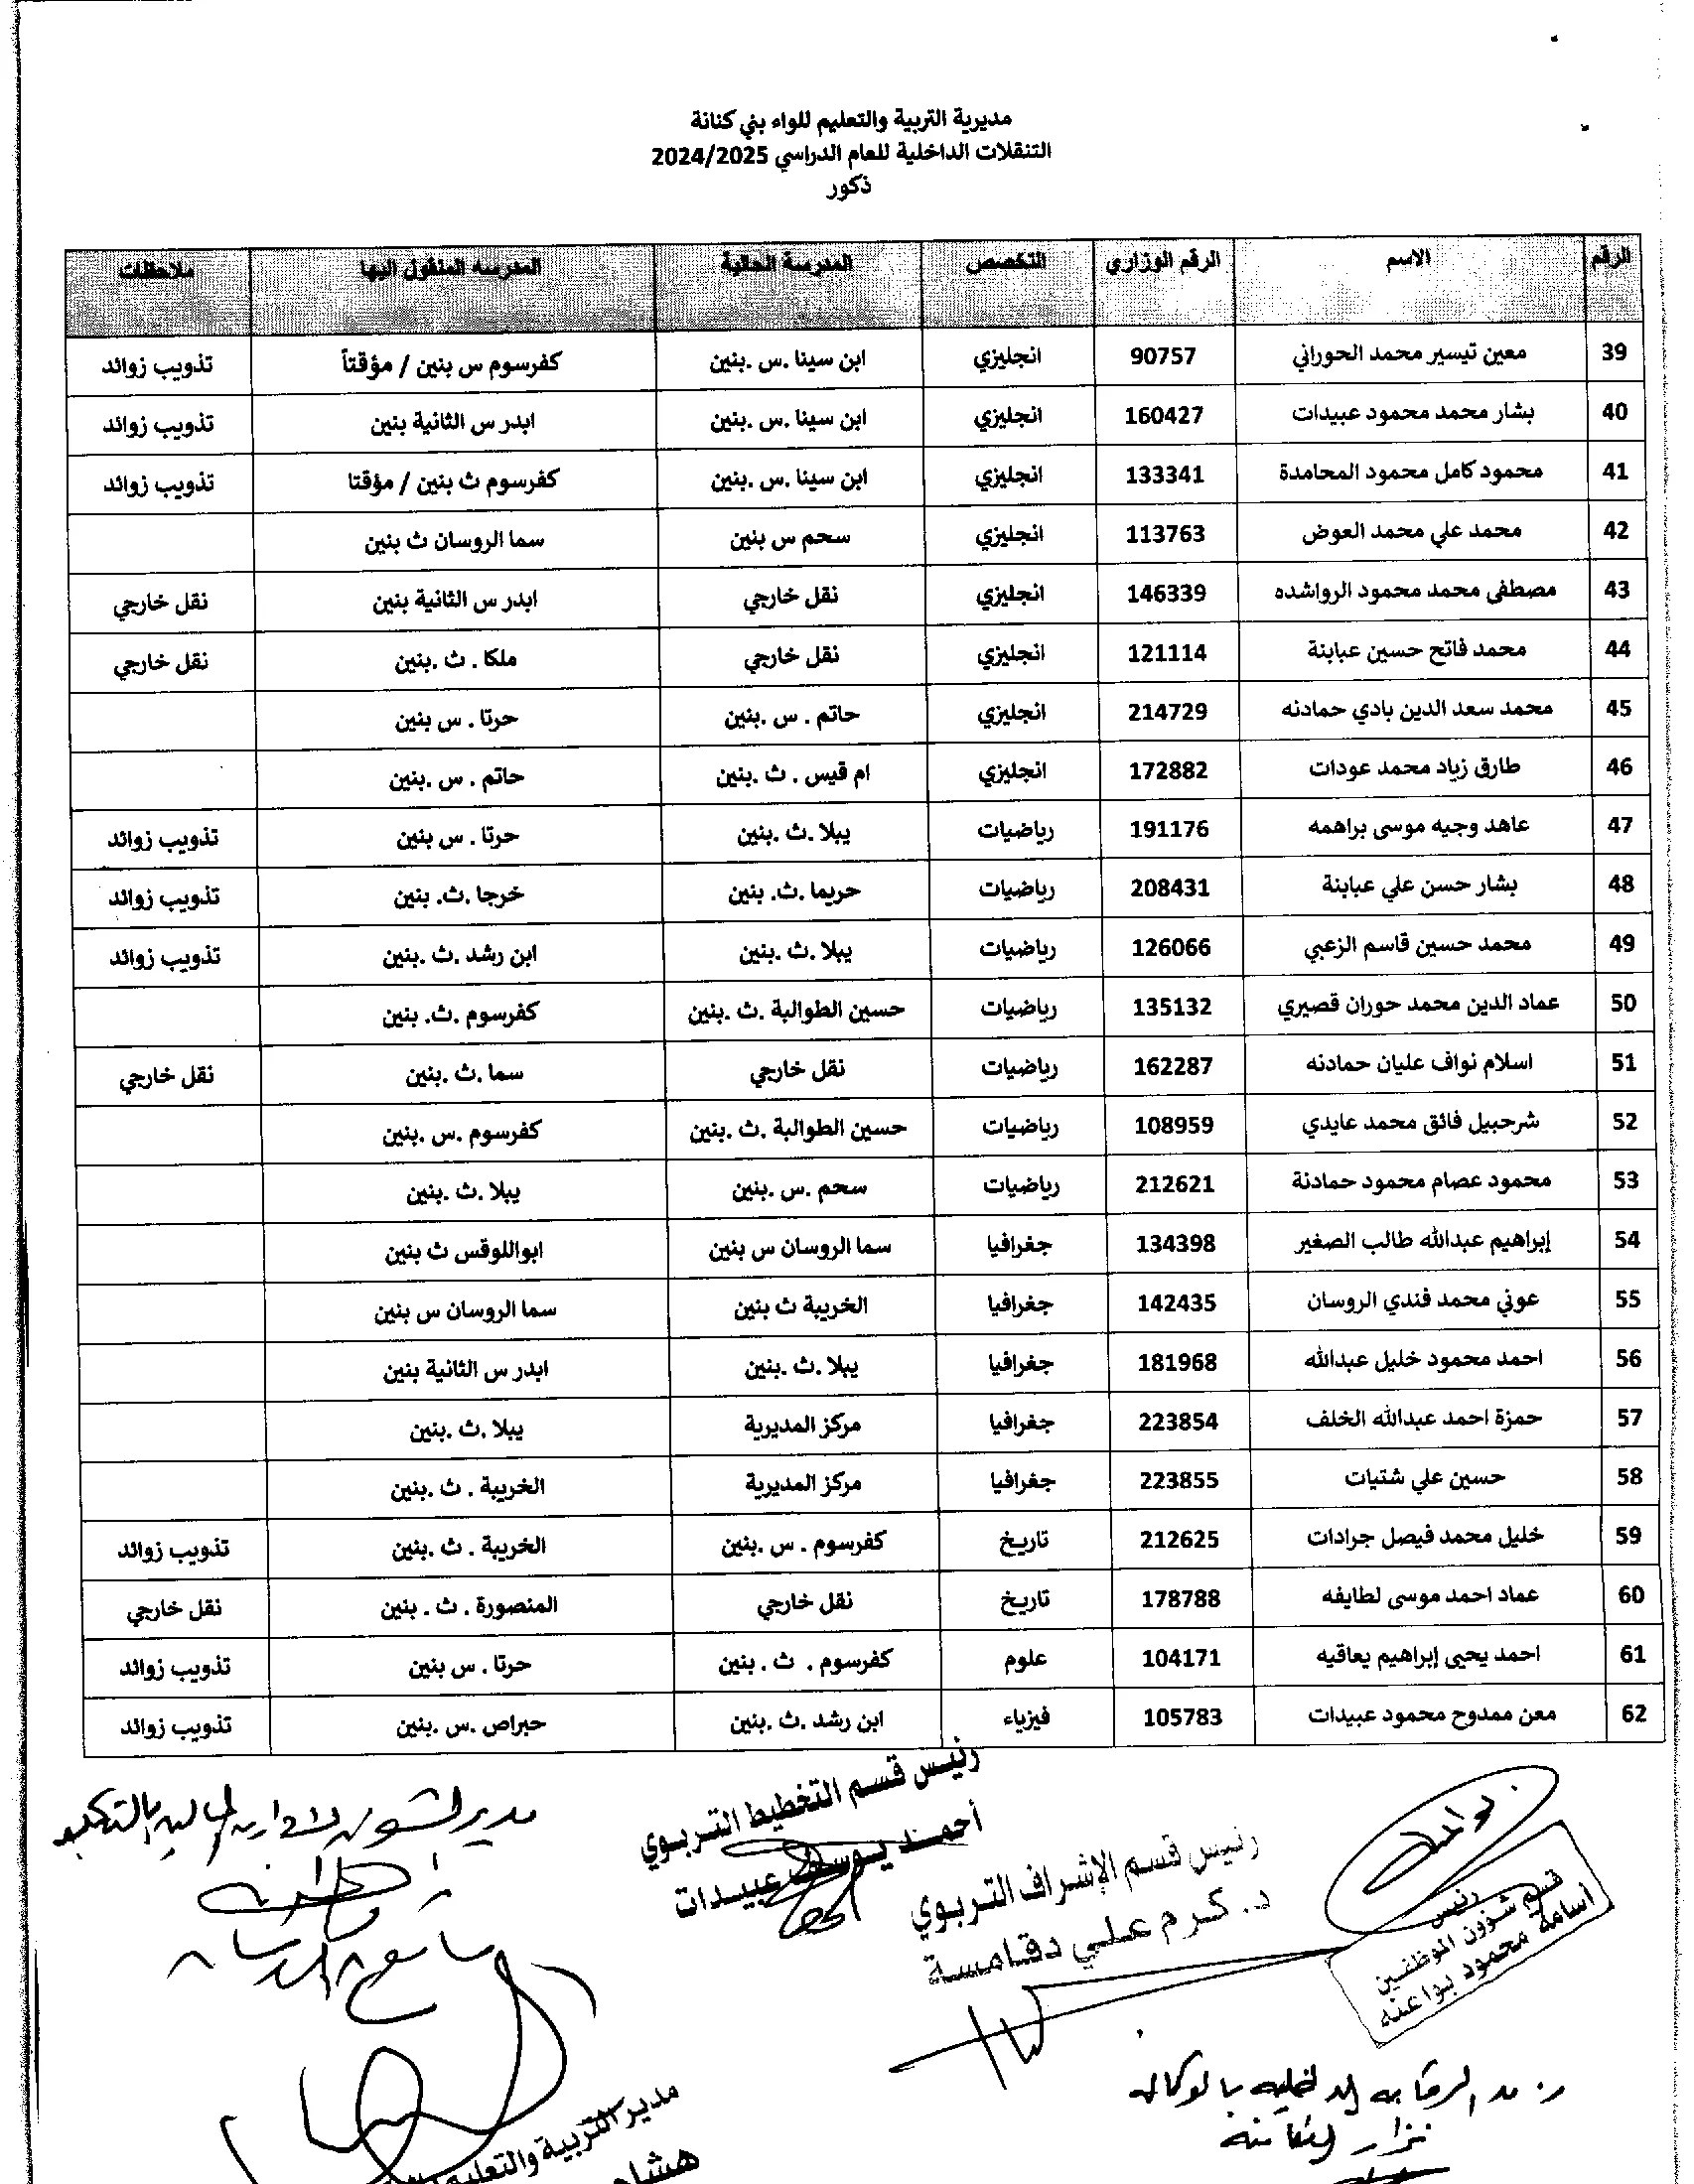 مديرية التربية والتعليم للواء بني كنانة
التنقلات الداخلية للعام الدراسي 2024/2025
ذكور
الرقم الاسم الرقم الوزاري التخصص المدرسة الحالية المدرسه المنقول اليها ملاحظات
39 معين تيسير محمد الحوراني 90757 انجليزي ابن سينا .س .بنين كفرسوم س بنين / مؤقتاً تذويب زوائد
40 بشار محمد محمود عبيدات 160427 انجليزي ابن سينا .س .بنين ابدر س الثانية بنين تذويب زوائد
41 محمود كامل محمود المحامدة 133341 انجليزي ابن سينا .س .بنين كفرسوم ث بنين / مؤقتا تذويب زوائد
42 محمد علي محمد العوض 113763 انجليزي سحم س بنين سما الروسان ث بنين
43 مصطفى محمد محمود الرواشده 146339 انجليزي نقل خارجي ابدر س الثانية بنين نقل خارجي
44 محمد فاتح حسين عبابنة 121114 انجليزي نقل خارجي ملكا . ث .بنين نقل خارجي
45 محمد سعد الدين بادي حمادنه 214729 انجليزي حاتم . س .بنين حرتا . س بنين
46 طارق زياد محمد عودات 172882 انجليزي ام قيس . ث .بنين حاتم . س .بنين
47 عاهد وجيه موسى براهمه 191176 رياضيات يبلا .ث .بنين حرتا . س بنين تذويب زوائد
48 بشار حسن علي عبابنة 208431 رياضيات حريما .ث. بنين خرجا .ث. بنين تذويب زوائد
49 محمد حسين قاسم الزعبي 126066 رياضيات يبلا .ث .بنين ابن رشد .ث .بنين تذويب زوائد
50 عماد الدين محمد حوران قصيري 135132 رياضيات حسين الطوالبة .ث .بنين كفرسوم .ث. بنين
51 اسلام نواف عليان حمادنه 162287 رياضيات نقل خارجي سما .ث .بنين نقل خارجي
52 شرحبيل فائق محمد عايدي 108959 رياضيات حسين الطوالبة .ث .بنين كفرسوم .س .بنين
53 محمود عصام محمود حمادنة 212621 رياضيات سحم .س .بنين يبلا .ث .بنين
54 إبراهيم عبدالله طالب الصغير 134398 جغرافيا سما الروسان س بنين ابواللوقس ث بنين
55 عوني محمد فندي الروسان 142435 جغرافيا الخريبة ث بنين سما الروسان س بنين
56 احمد محمود خليل عبدالله 181968 جغرافيا يبلا .ث .بنين ابدر س الثانية بنين
57 حمزة احمد عبدالله الخلف 223854 جغرافيا مركز المديرية يبلا .ث .بنين
58 حسين علي شتيات 223855 جغرافيا مركز المديرية الخريبة . ث .بنين
59 خليل محمد فيصل جرادات 212625 تاريخ كفرسوم . س .بنين الخريبة . ث .بنين تذويب زوائد
60 عماد احمد موسى لطايفه 178788 تاريخ نقل خارجي المنصورة . ث . بنين نقل خارجي
61 احمد يحيى إبراهيم يعاقبه 104171 علوم كفرسوم . ث . بنين حرتا . س بنين تذويب زوائد
62 معن ممدوح محمود عبيدات 105783 فيزياء ابن رشد .ث .بنين حبراص .س .بنين تذويب زوائد
رئيس
قسم شؤون الموظفين
أسامة محمود بواعنه
رئيس قسم الإشراف التربوي
د. كرم علي دقامسة
رئيس قسم التخطيط التربوي
أحمد يوسف عبيدات
مدير الشؤون الادارية المالية بالتكليف
الرقابة الداخلية بالوكالة
نزار
مدير التربية والتعليم